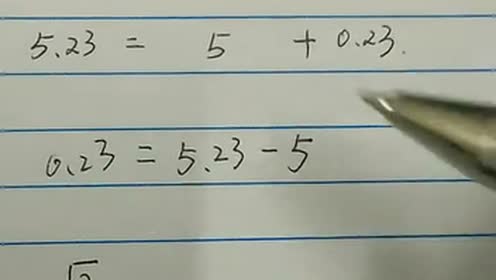 5.23 = 5 + 0.23.
0.23 = 5.23 - 5